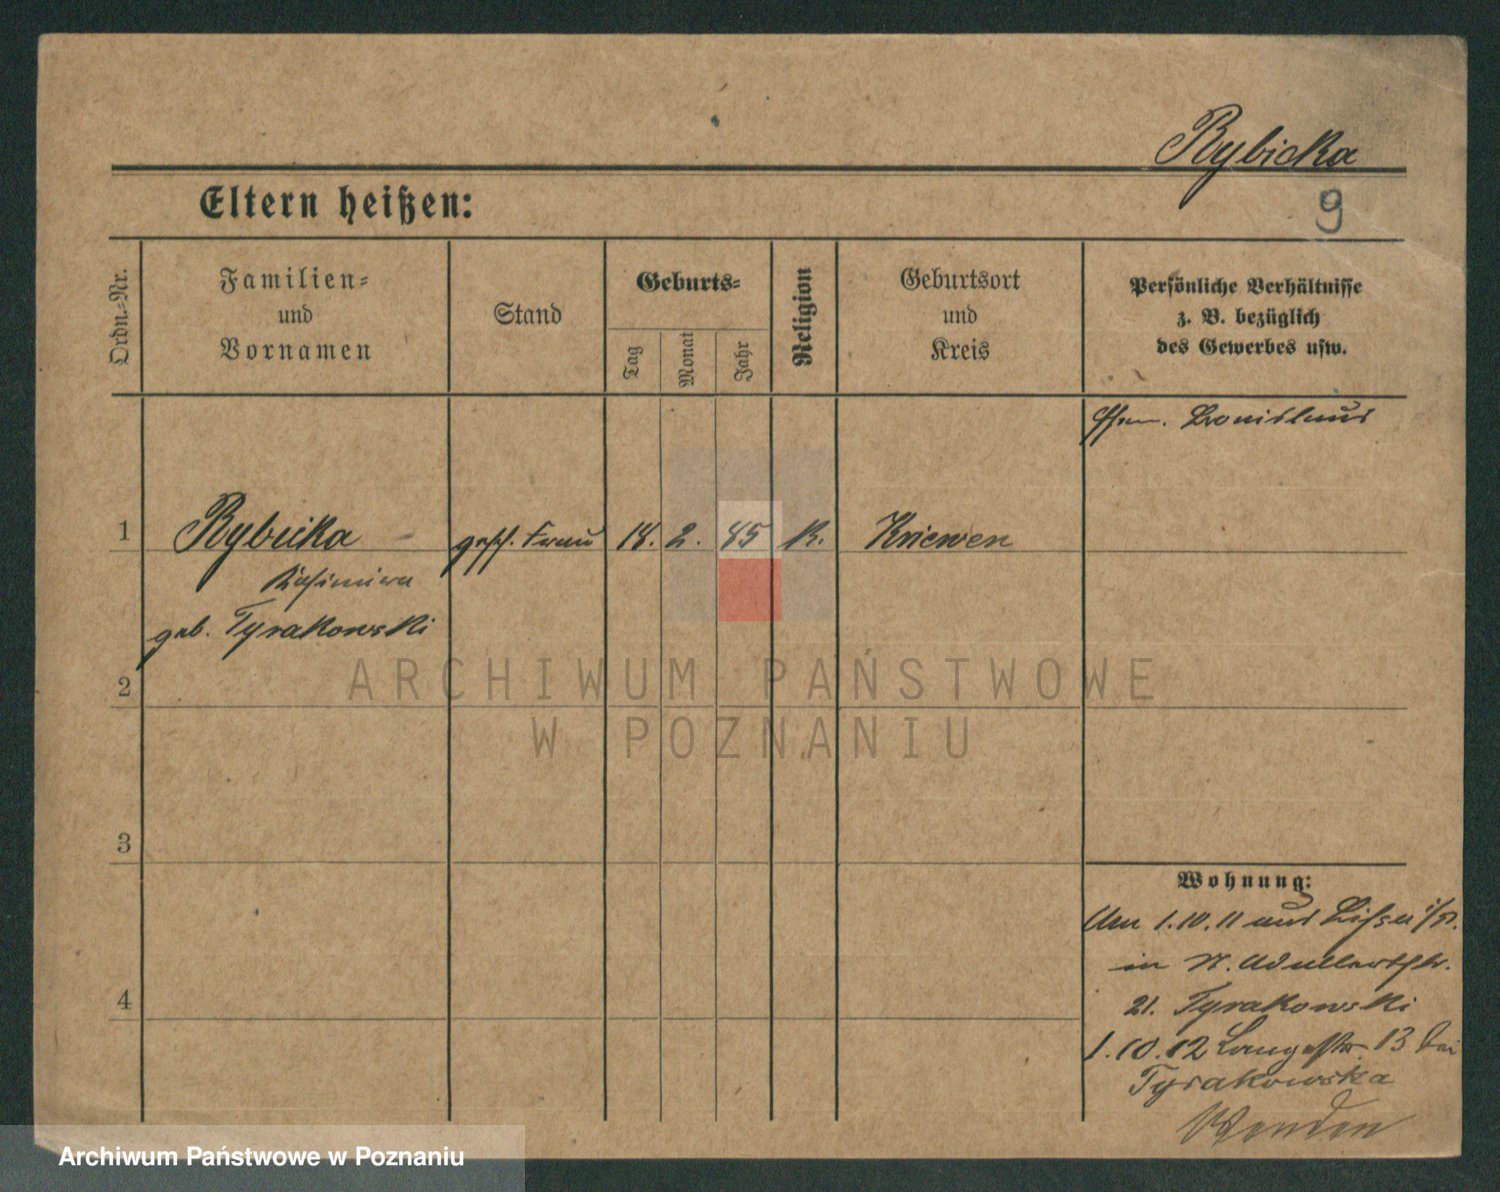 Rybicka
9
Eltern heißen:
Ordn.-Nr.
Familien-
und
Vornamen
Stand
Geburts-
Tag
Monat
Jahr
Religion
Geburtsort
und
Kreis
Persönliche Verhältnisse
z. B. bezüglich
des Gewerbes usw.
Ehem. Bronislaus
1
Rybicka
gesch. Frau
18. 2. 85
K.
Kriewen
Kasimira
geb. Tyrakowski
2
ARCHIWUM PAŃSTWOWE
W POZNANIU
3
Wohnung:
Am 1.10.11 aus Lissa i/P.
in W.
4
21. Tyrakowski
1.10.12 Langestr. 13 bei
Tyrakowska
Wenden
Archiwum Państwowe w Poznaniu